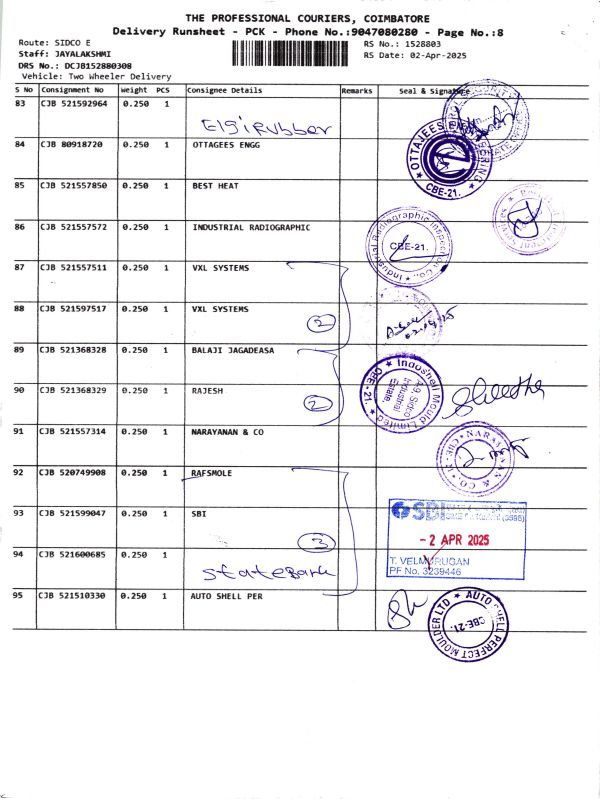 THE PROFESSIONAL COURIERS, COIMBATORE
Delivery Runsheet - PCK - Phone No.:9047080280 - Page No.:8
Route: SIDCO E
RS No.: 1528803
Staff: JAYALAKSHMI
RS Date: 02-Apr-2025
DRS No.: DCJB152880308
Vehicle: Two Wheeler Delivery
S No Consignment No Weight PCS Consignee Details Remarks Seal & Signature
83 CJB 521592964 0.250 1
Elgirubber
84 CJB 80918720 0.250 1 OTTAGEES ENGG
OTTAJEES ENGINEERING
CBE-21.
85 CJB 521557850 0.250 1 BEST HEAT
86 CJB 521557572 0.250 1 INDUSTRIAL RADIOGRAPHIC
Industrial Radiographic Inspection Co.,
CBE-21.
87 CJB 521557511 0.250 1 VXL SYSTEMS
88 CJB 521597517 0.250 1 VXL SYSTEMS
2
89 CJB 521368328 0.250 1 BALAJI JAGADEASA
90 CJB 521368329 0.250 1 RAJESH
2
Indoshell Mould Limited
A-9, Sidco
Industrial
Estate,
CBE-21.
91 CJB 521557314 0.250 1 NARAYANAN & CO
NARAYANAN & CO.
92 CJB 520749908 0.250 1 RAFSMOLE
93 CJB 521599047 0.250 1 SBI
3
- 2 APR 2025
94 CJB 521600685 0.250 1
state Bank
T. VELMURUGAN
PF No. 3239446
95 CJB 521510330 0.250 1 AUTO SHELL PER
AUTO SHELL PERFECT MOULDER LTD
CBE-21.